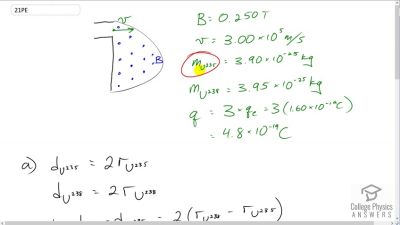 21PE
v
B
B = 0.250 T
v = 3.00 × 10⁵ m/s
m_U235 = 3.90 × 10⁻²⁵ kg
m_U238 = 3.95 × 10⁻²⁵ kg
q = 3 × q_e = 3 (1.60 × 10⁻¹⁹ C)
= 4.8 × 10⁻¹⁹ C
a) d_U235 = 2 r_U235
d_U238 = 2 r_U238
2 ( r_U238 - r_U235 )
College Physics
ANSWERS